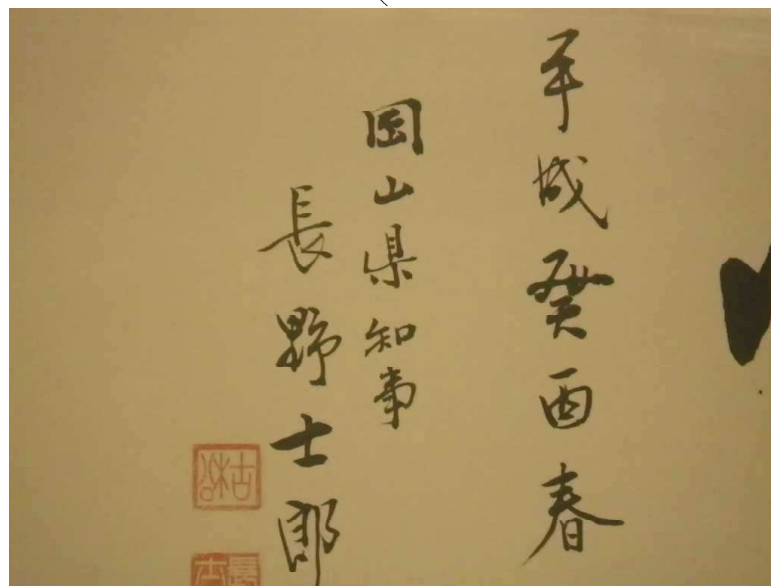 平成癸酉春
岡山県知事
長野士郎